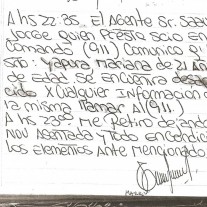 A HS 22:35. El Agente Sr. Saav
Jorge Quien Presta Scio En
Comando (911) Comunico Q
Srta: Yapura Mariana de 21 A
de Edad se Encuentra desa
cido X Cualquier Informacion
la misma llamar Al (911)
A HS 2300 Me Retiro dejando
Nov Asentada y todo En Condic
Los Elementos Ante Mencionado